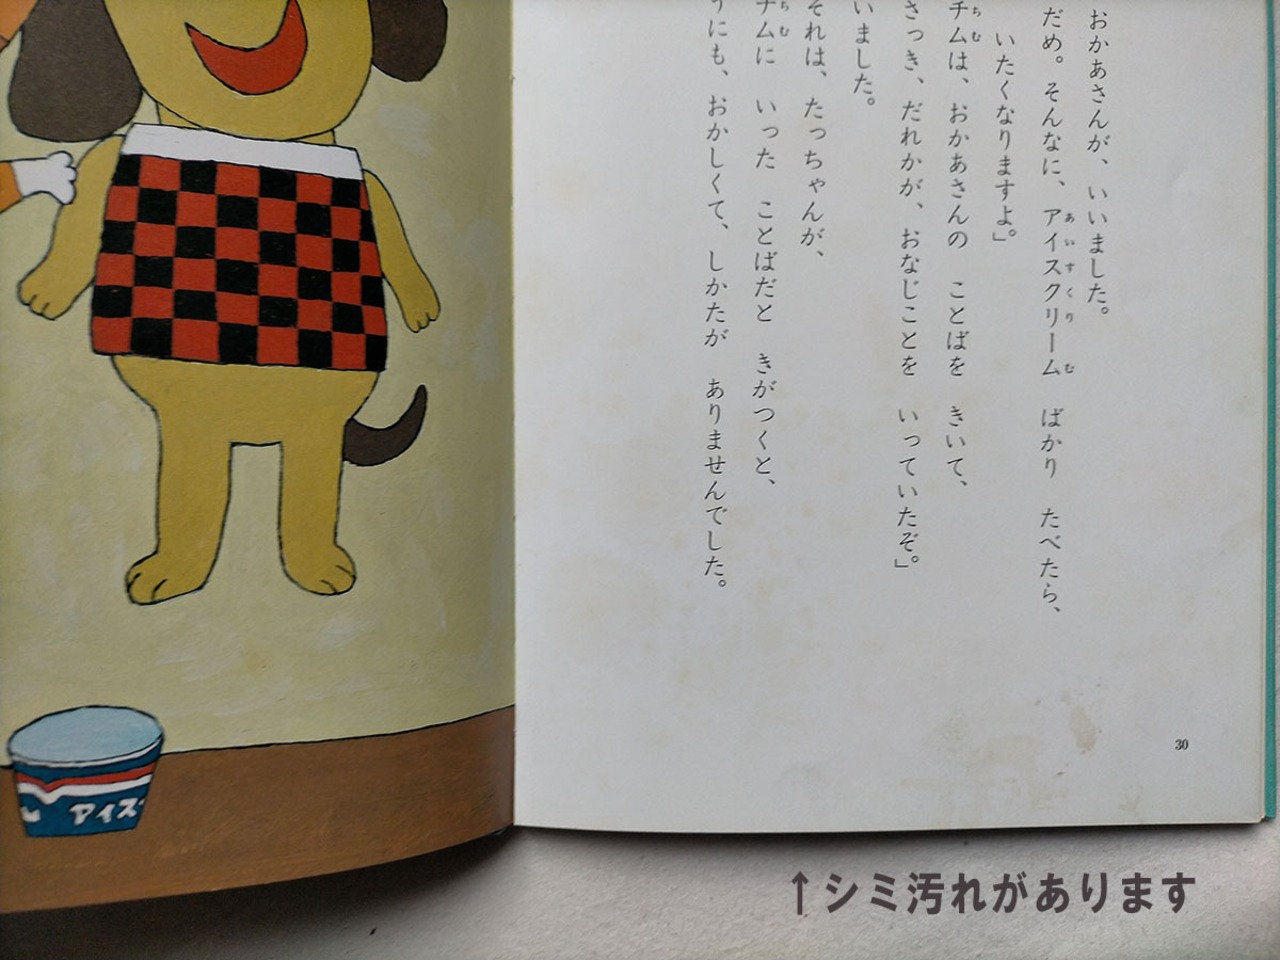 おかあさんが、いいました。
だめ。そんなに、アイスクリーム ばかり たべたら、
いたくなりますよ。」
チムは、おかあさんの ことばを きいて、
さっき、だれかが、おなじことを いっていたぞ。」
いました。
それは、たっちゃんが、
チムに いった ことばだと きがつくと、
うにも、おかしくて、しかたが ありませんでした。
30
アイス
↑シミ汚れがあります